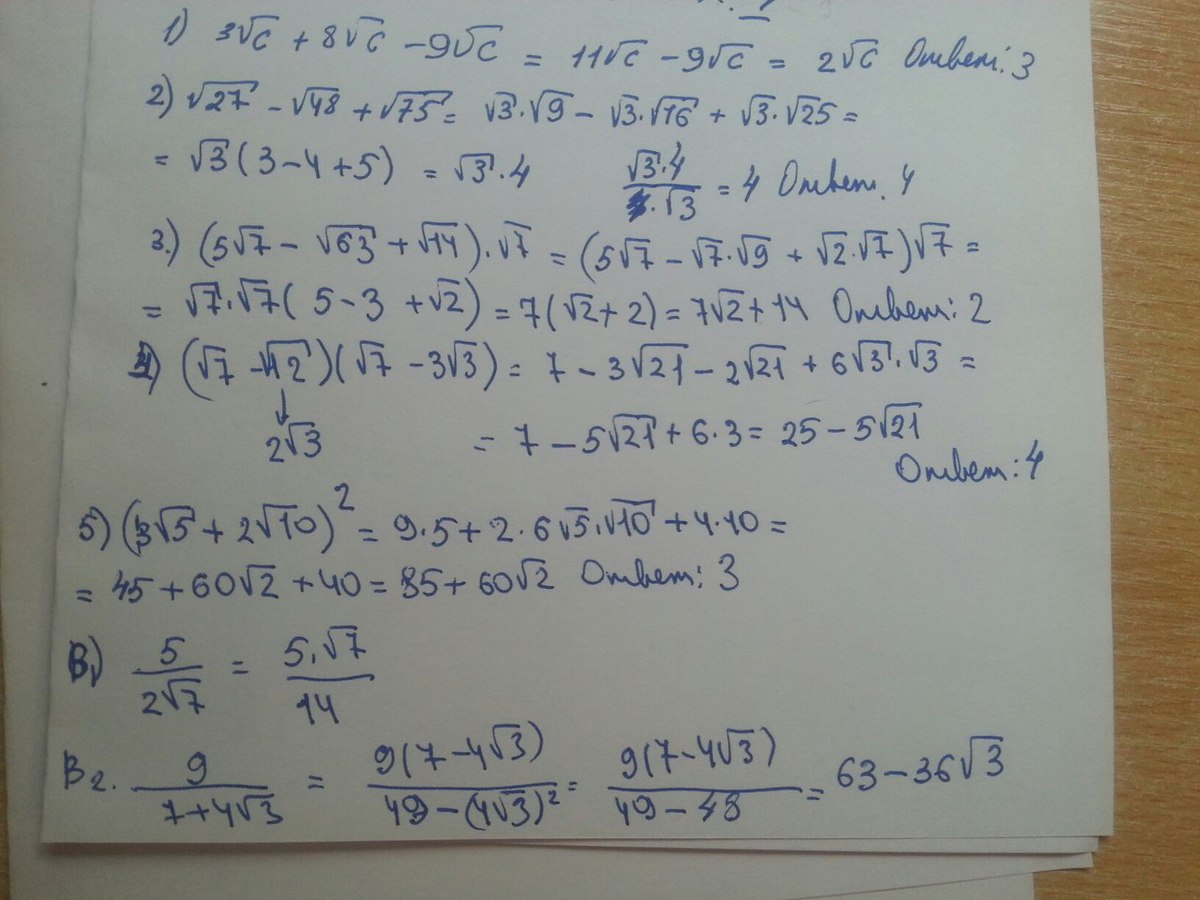 1) 3√c + 8√c - 9√c = 11√c - 9√c = 2√c Ответ: 3
2) √27 - √48 + √75 = √3·√9 - √3·√16 + √3·√25 =
= √3(3-4+5) = √3·4 (√3·4)/(√3) = 4 Ответ. 4
3.) (5√7 - √63 + √14)·√7 = (5√7 - √7·√9 + √2·√7)√7 =
= √7·√7(5-3+√2) = 7(√2+2) = 7√2+14 Ответ: 2
4) (√7 - √12)(√7 - 3√3) = 7 - 3√21 - 2√21 + 6√3·√3 =
↓
2√3 = 7 - 5√21 + 6·3 = 25 - 5√21
Ответ: 4
5) (3√5 + 2√10)² = 9·5 + 2·6√5·√10 + 4·10 =
= 45 + 60√2 + 40 = 85 + 60√2 Ответ: 3
B1) 5/(2√7) = (5·√7)/14
B2. 9/(7+4√3) = 9(7-4√3)/(49-(4√3)²) = 9(7-4√3)/(49-48) = 63-36√3